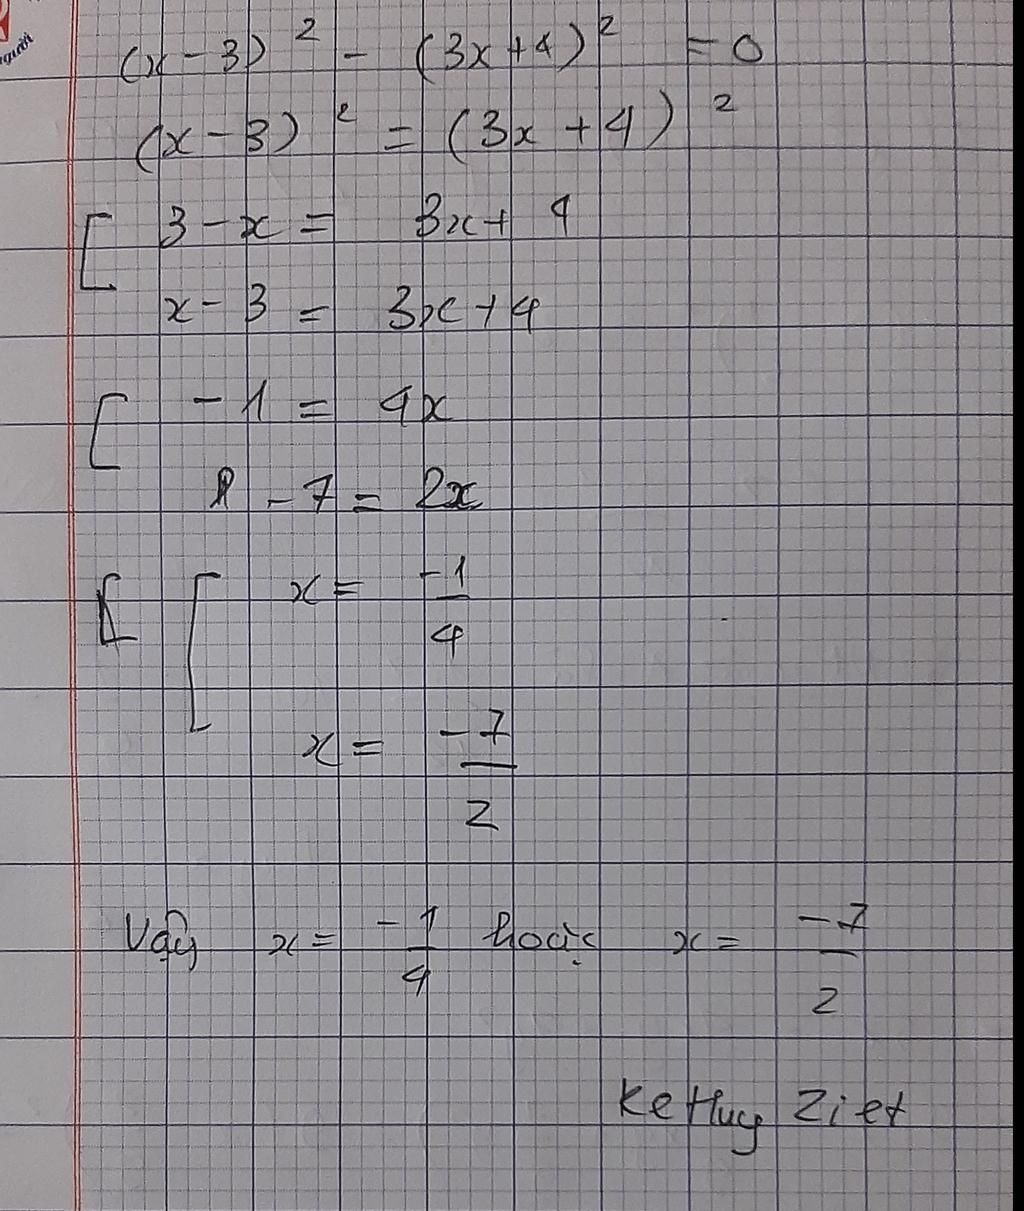 (x - 3)² - (3x + 4)² = 0
(x - 3)² = (3x + 4)²
[ 3 - x = 3x + 4
x - 3 = 3x + 4
[ - 1 = 4x
- 7 = 2x
[ x = -1/4
x = -7/2
Vậy x = -1/4 hoặc x = -7/2
Kethuy Ziet